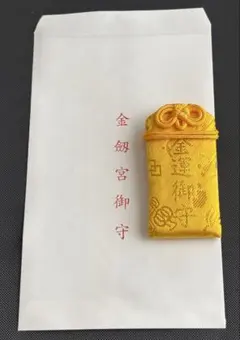 金運御守
金劔宮御守